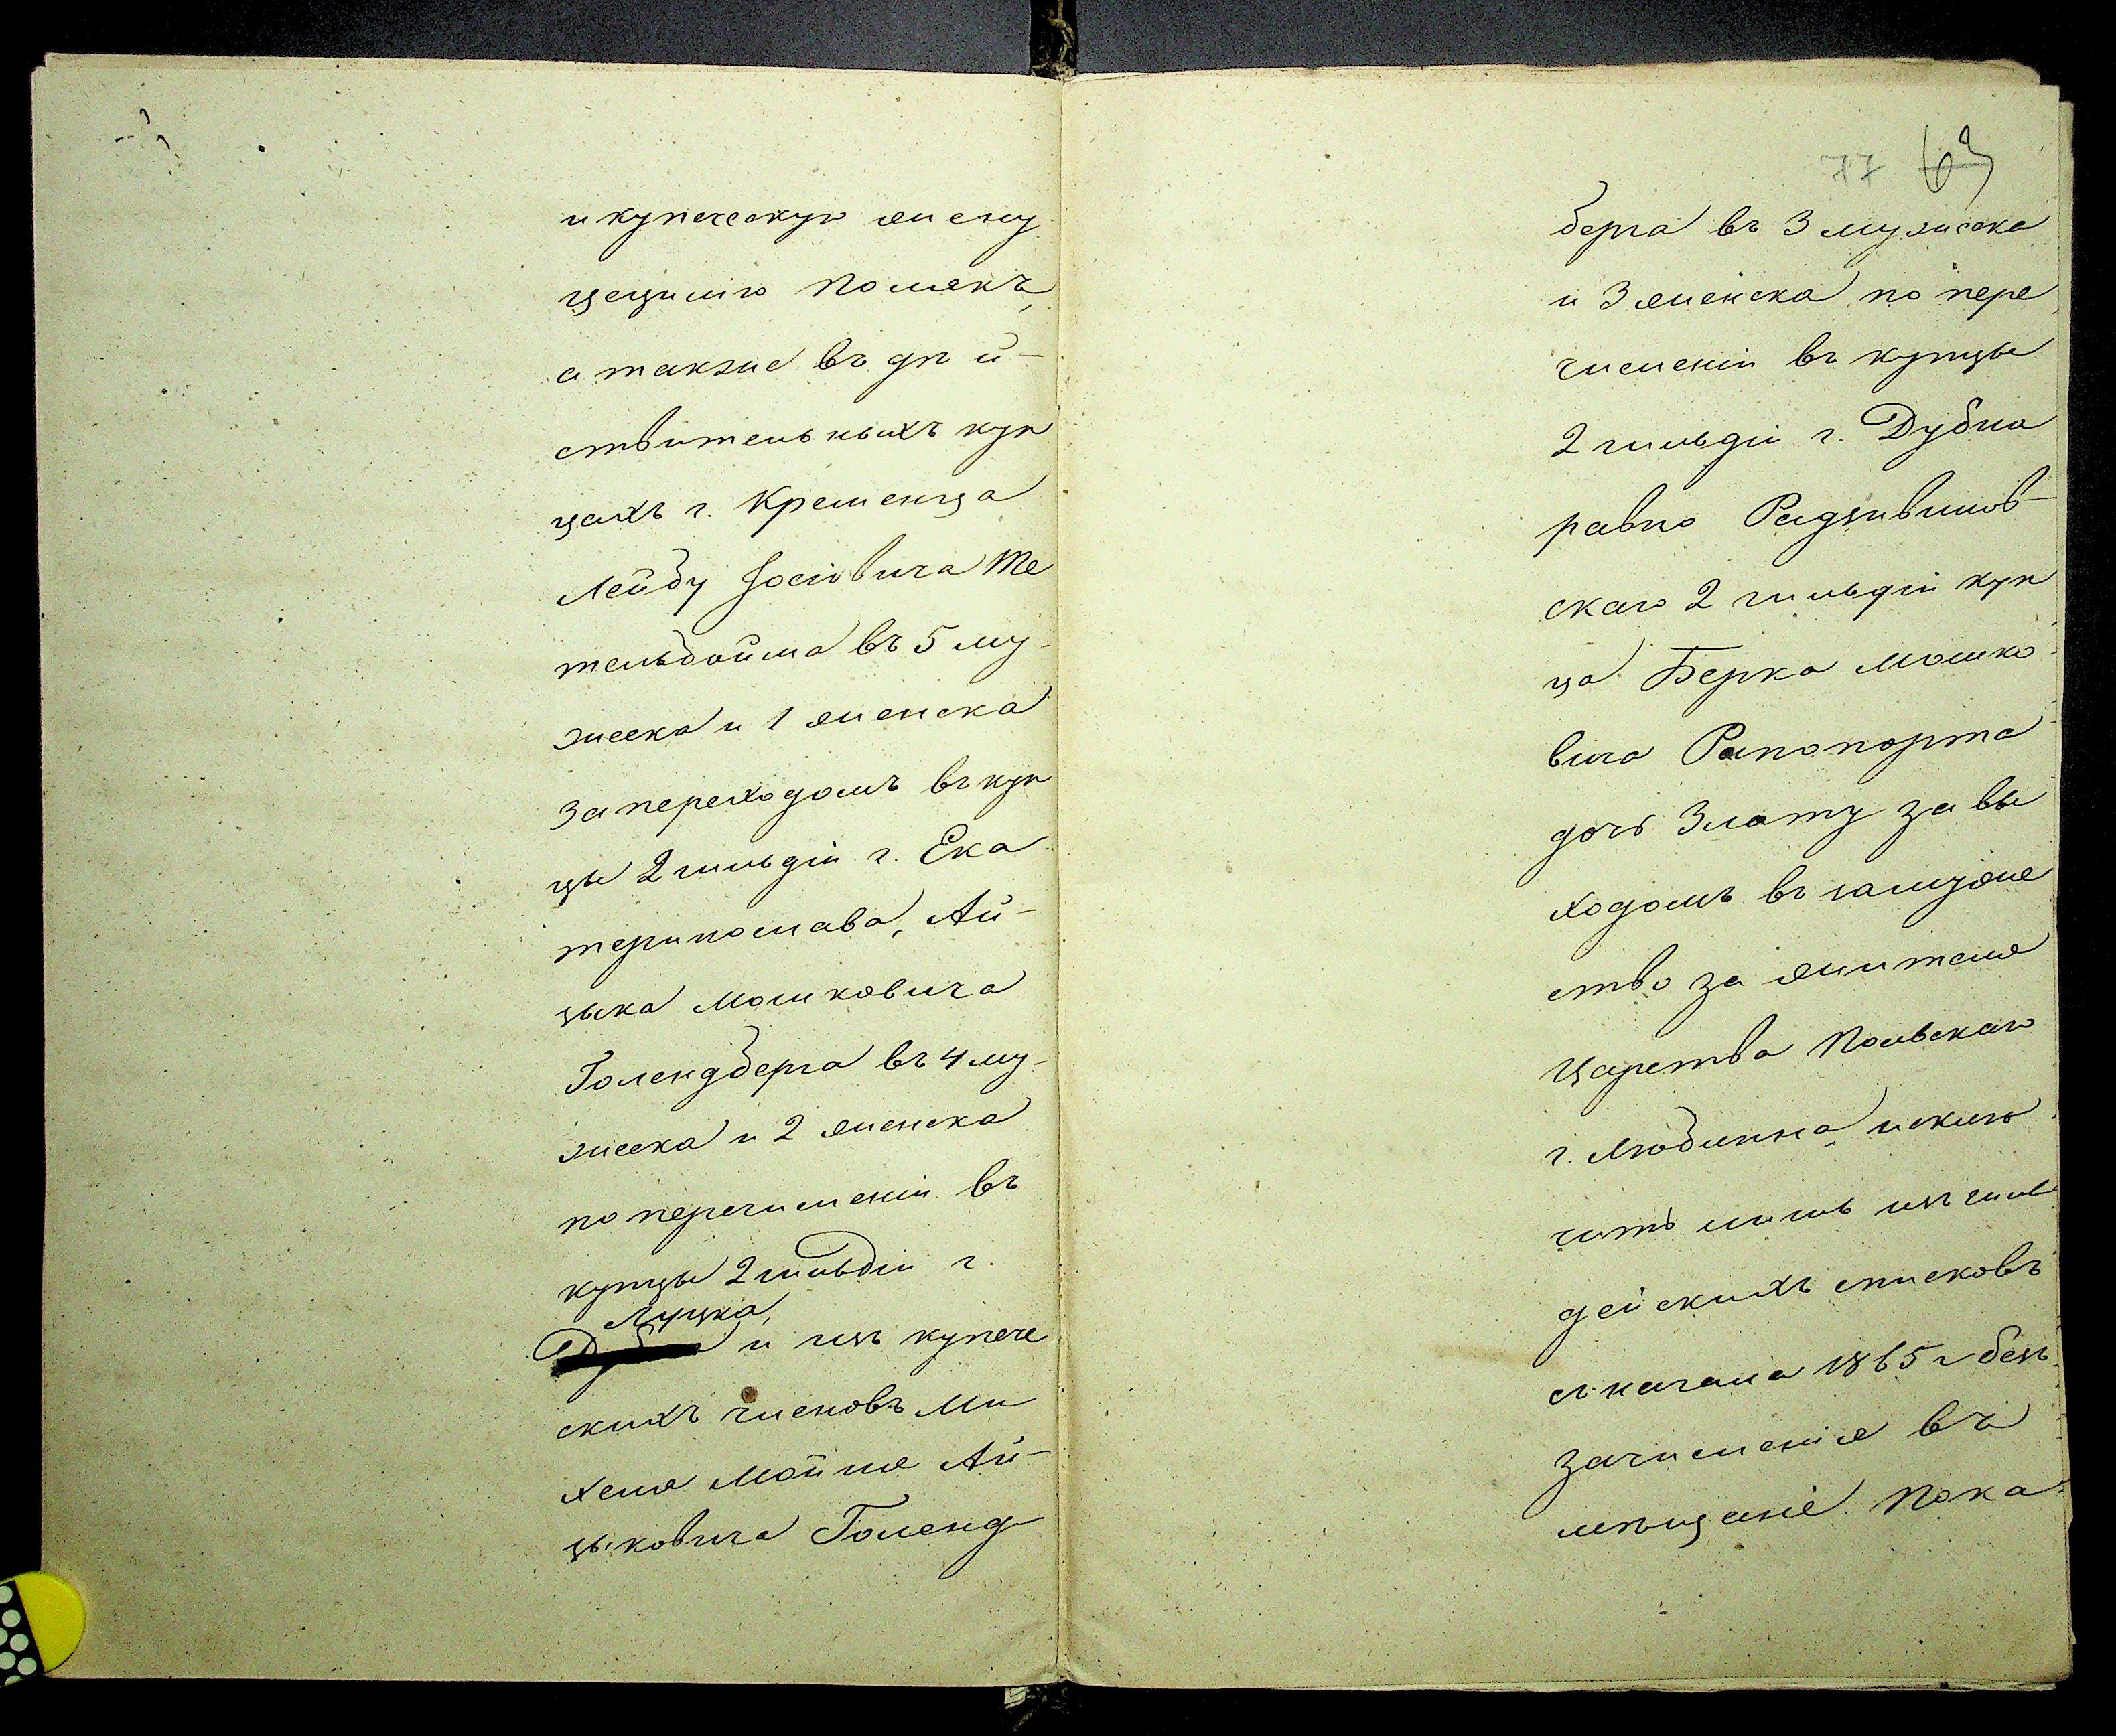 и купеческую жену
Цецилію Полякъ,
а также въ дѣй-
ствительныхъ куп
цахъ г. Кременца
Лейбу Іосіовича Те
тельбойма въ 5 му
жеска и 1 женска
за переходомъ въ куп
цы 2 гильдіи г. Ека
теринослава, Ай-
цыка Мошковича
Голендберга въ 4 му-
жеска и 2 женска
по перечисленіи въ
купцы 2 гильдіи г.
Луцка,
и изъ купече
скихъ членовъ Ми
хеля Мойше Ай-
цыковича Голенд
77 63
берга въ 3 мужеска
и 3 женска по пере
численіи въ купцы
2 гильдіи г. Дубна
равно Радзивилов-
скаго 2 гильдіи куп
ца Берка Мошко
вича Рапопорта
дочь Злату за вы
ходомъ въ замуже
ство за жителя
Царства Польскаго
г. Люблина, исклю
чить лишь изъ гиль
дейскихъ списковъ
съ начала 1865 г безъ
зачисленія въ
мѣщане. Пока